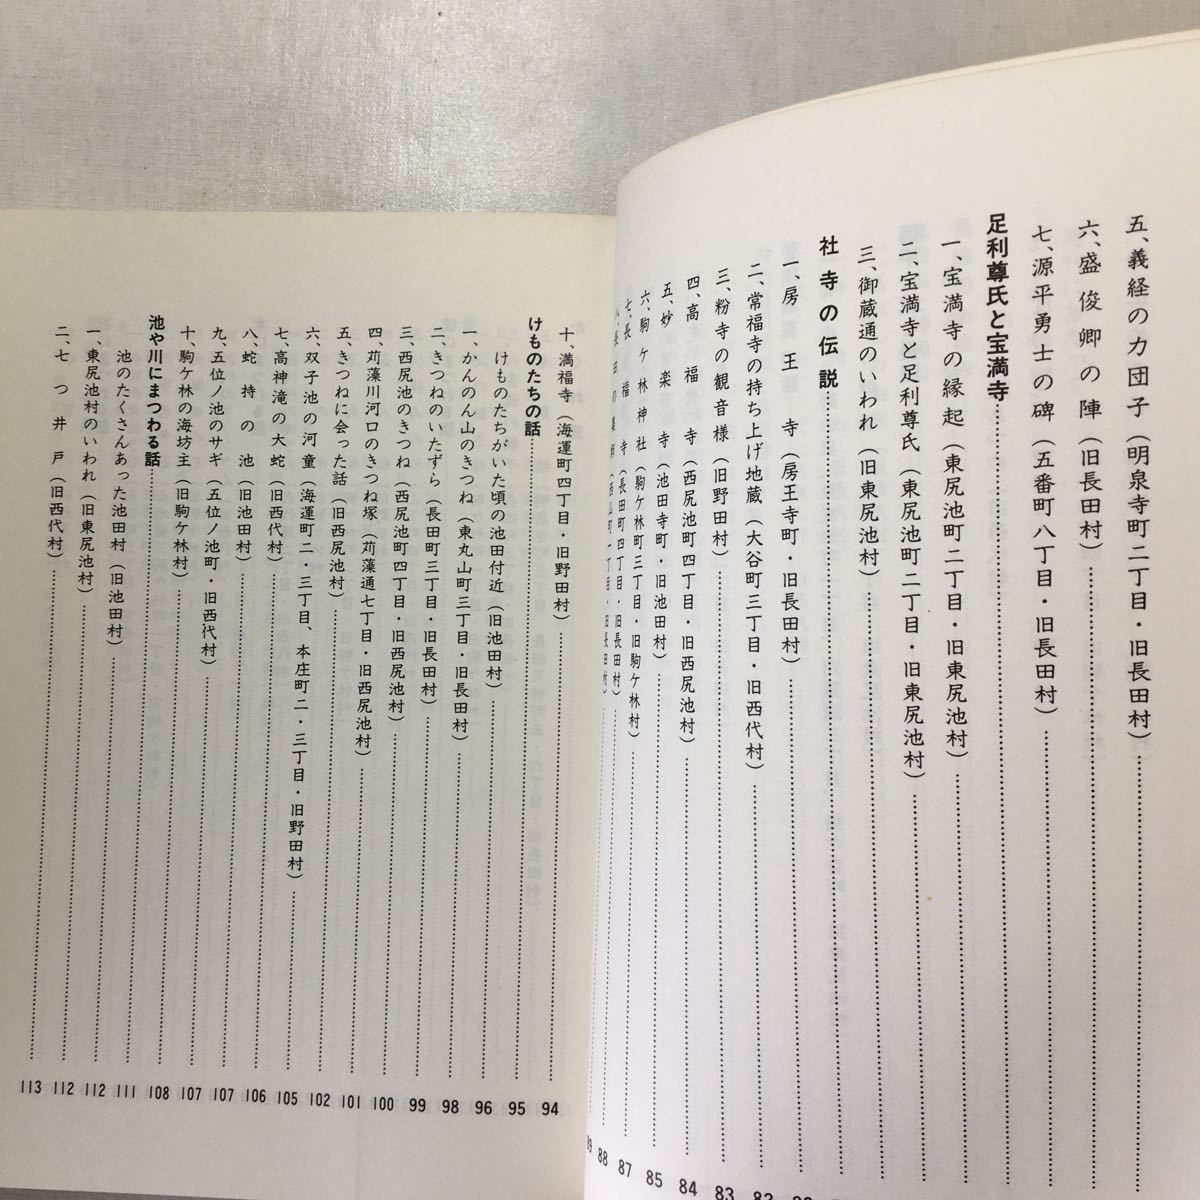 五、義経の力団子（明泉寺町二丁目・旧長田村）
六、盛俊卿の陣（旧長田村）
七、源平勇士の碑（五番町八丁目・旧長田村）
足利尊氏と宝満寺
一、宝満寺の縁起（東尻池町二丁目・旧東尻池村）
二、宝満寺と足利尊氏（東尻池町二丁目・旧東尻池村）
三、御蔵通のいわれ（旧東尻池村）
社寺の伝説
一、房王寺（房王寺町・旧長田村）
二、常福寺の持ち上げ地蔵（大谷町三丁目・旧西代村） 82
三、粉寺の観音様（旧野田村） 83
四、高福寺（西尻池町四丁目・旧西尻池村） 84
五、妙楽寺（池田寺町・旧池田村） 85
六、駒ケ林神社（駒ケ林町三丁目・旧駒ケ林村） 87
七、長福寺（長田町四丁目・旧長田村） 88
八、長田の 丁目・旧長田村） 89
十、満福寺（海運町四丁目・旧野田村） 94
けものたちの話 95
けものたちがいた頃の池田付近（旧池田村） 96
一、かんのん山のきつね（東丸山町三丁目・旧長田村） 98
二、きつねのいたずら（長田町三丁目・旧長田村） 99
三、西尻池のきつね（西尻池町四丁目・旧西尻池村） 100
四、苅藻川河口のきつね塚（苅藻通七丁目・旧西尻池村） 101
五、きつねに会った話（旧西尻池村） 102
六、双子池の河童（海運町二・三丁目、本庄町二・三丁目・旧野田村） 105
七、高神滝の大蛇（旧西代村） 106
八、蛇持の池（旧池田村） 107
九、五位ノ池のサギ（五位ノ池町・旧西代村） 107
十、駒ケ林の海坊主（旧駒ケ林村） 108
池や川にまつわる話 111
池のたくさんあった池田村（旧池田村） 112
一、東尻池村のいわれ（旧東尻池村） 112
二、七つ井戸（旧西代村） 113